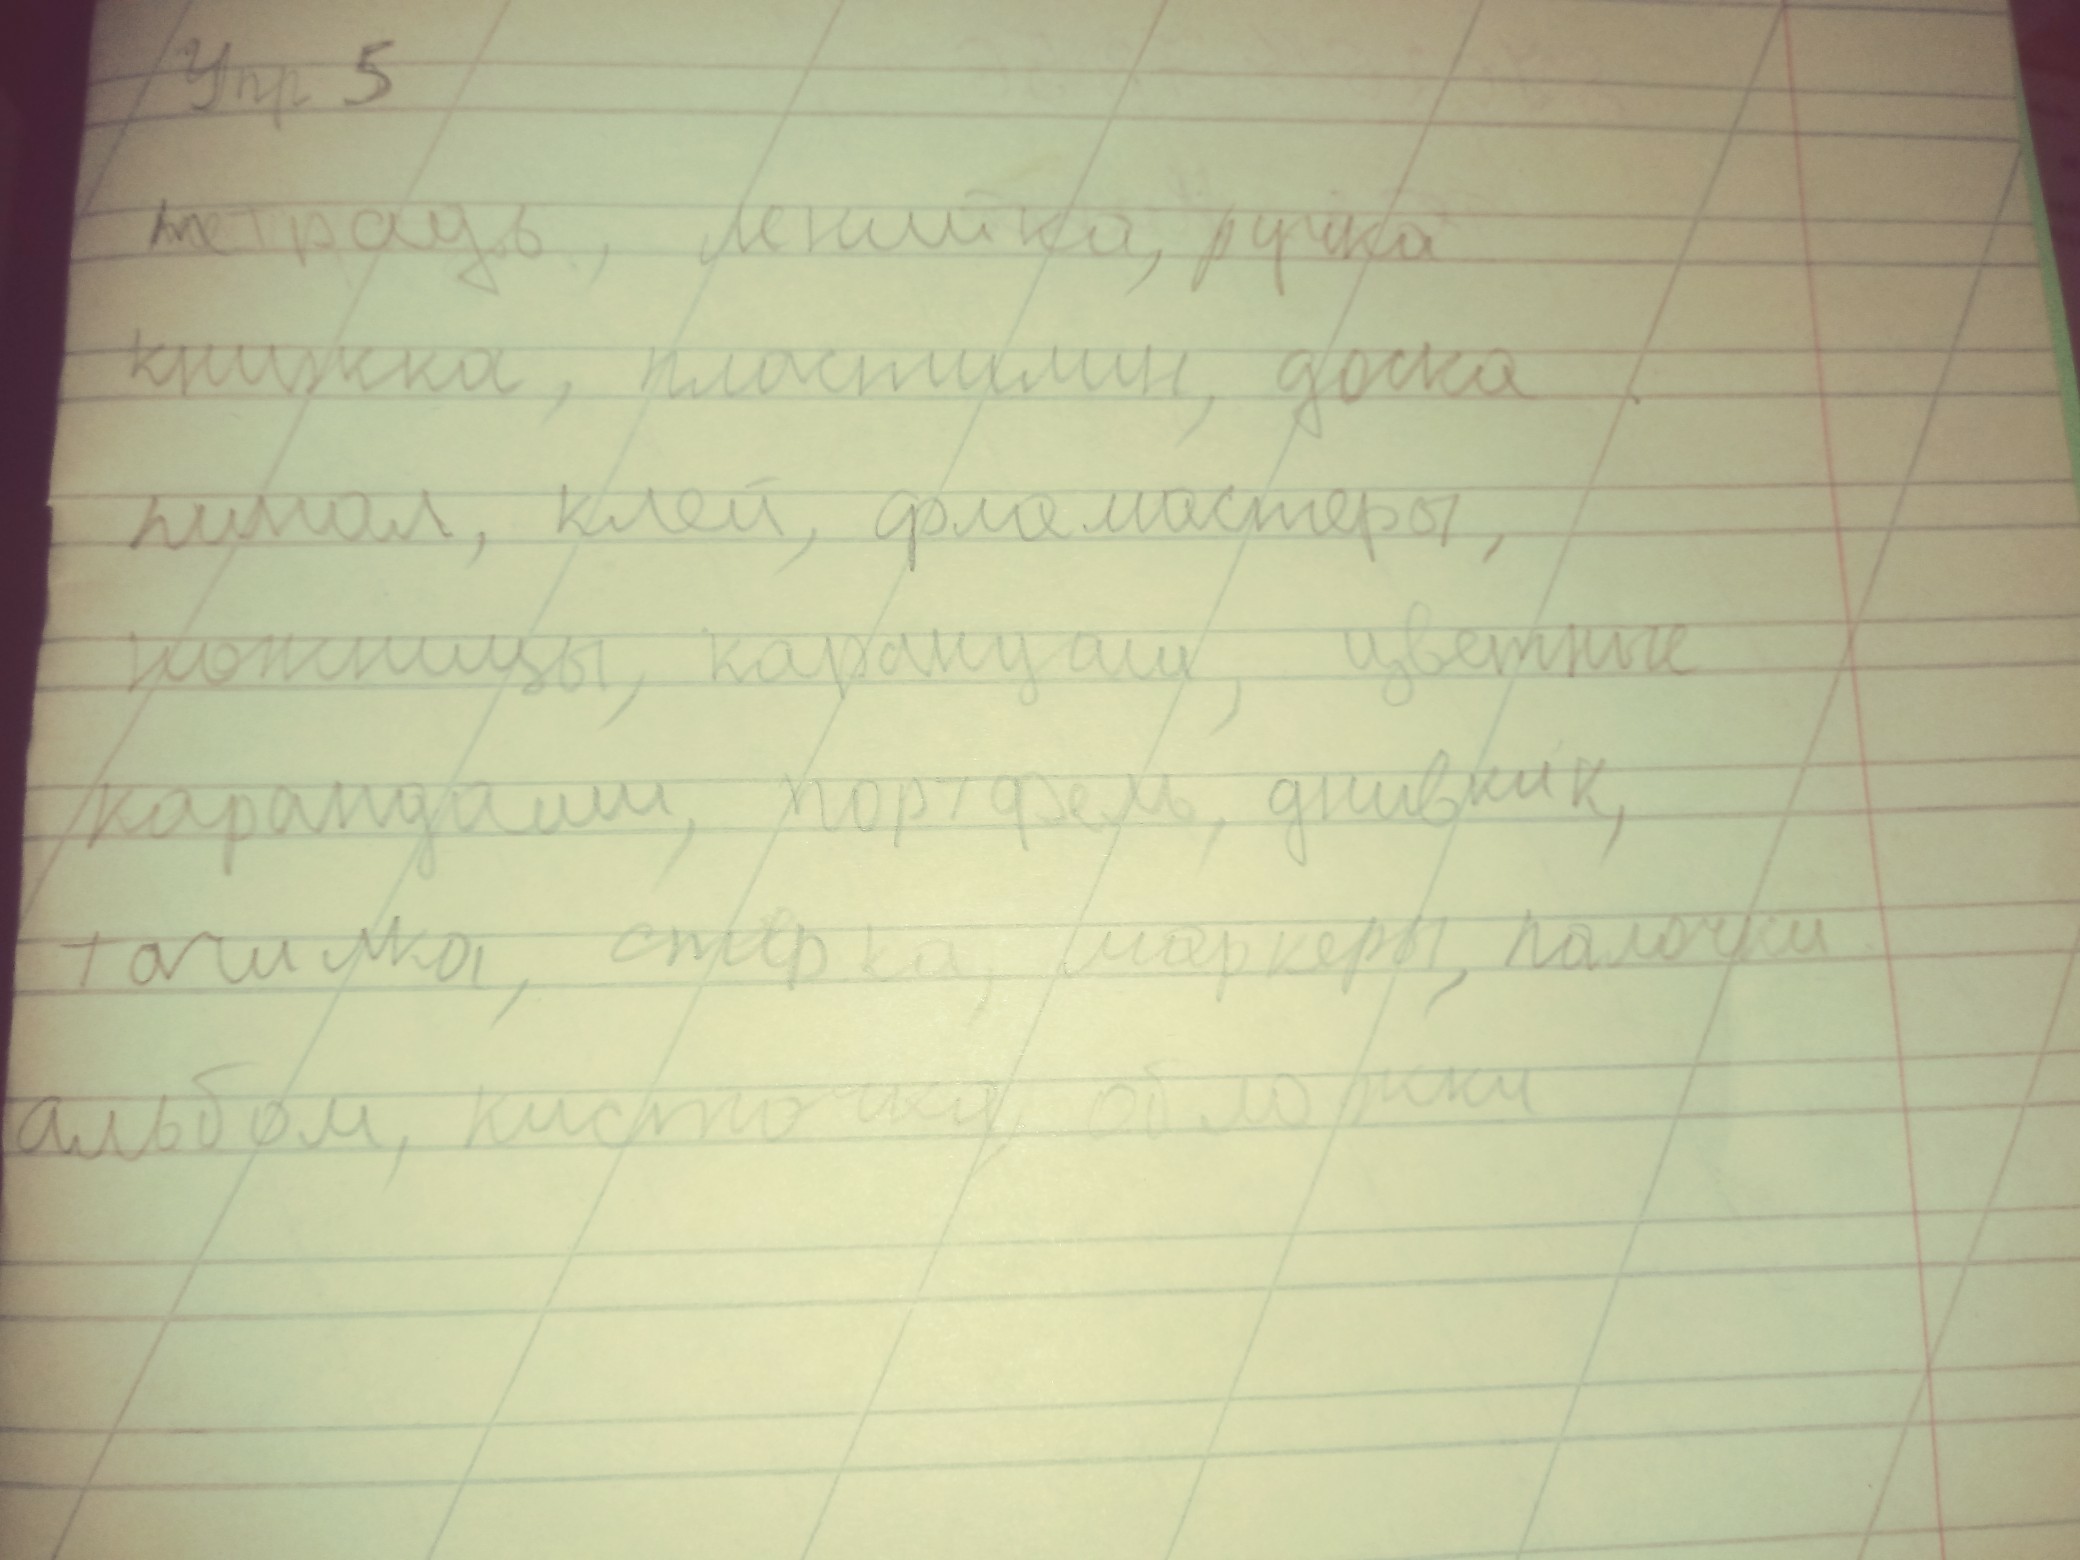 Упр 5
тетрадь, ленийка, ручка
книжка, пластилин, доска
пинал, клей, фламастеры,
ножницы, карандаш, цветные
карандаши, портфель, днивкик,
точилка, стёрка, маркеры, палочки
альбом, кисточки, обложки